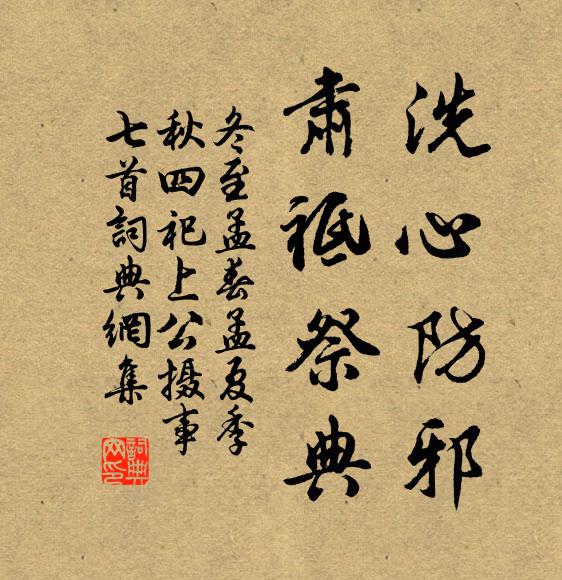 洗心防邪
肅祗祭典
冬至孟春孟夏季
秋四祀上公摄事
七首詞典網集
詞典
网印